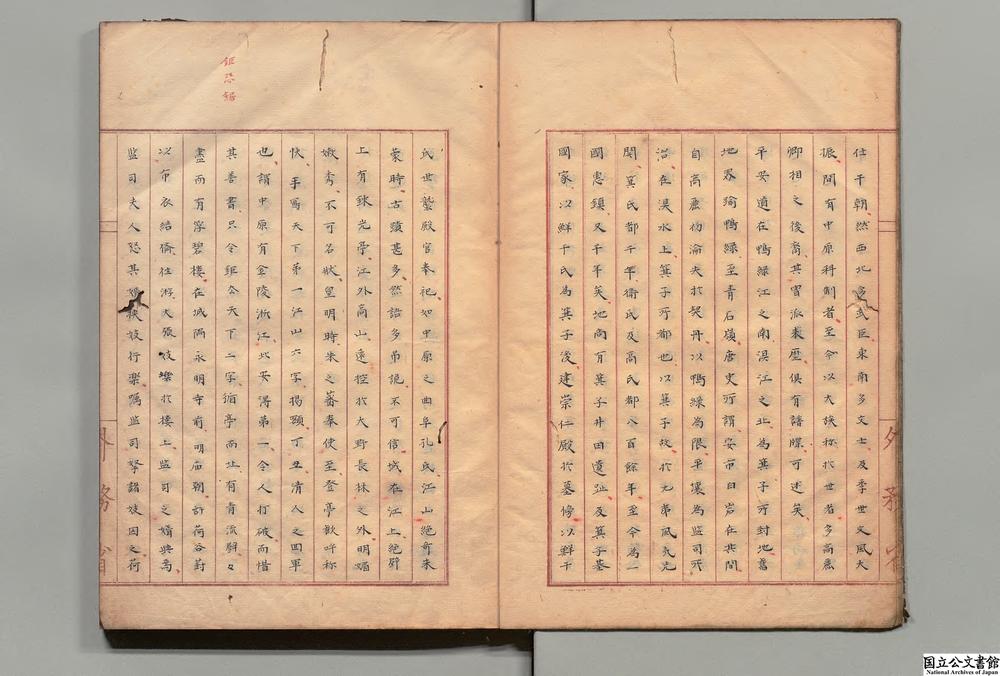 仕于朝然西北多武臣東南多文士及季世文風大
振間有中原科制者至令以大族称於世者多高麗
卿相之後裔其冒派来歴俱有譜牒可述矣
平安道在鴨緑江之南浿江之北為箕子所封地舊
地界踰鴨緑至青石嶺唐史所謂安市白岩在其間
自高麗初淪失於契丹以鴨緑為限平壤為監司所
治在浿水上箕子所都也以箕子故於九夷風気先
聞箕氏都千年衛氏及高氏都八百餘年至今為一
國重鎮又千年矣地尚有箕子井田遺址及箕子墓
國家以鮮于氏為箕子後建崇仁殿於墓傍以鮮于
氏世襲殿官奉祀如中原之曲阜孔氏江山絶奇朱
蒙時古蹟甚多然語多弔詭不可信城在江上絶壁
上有錬光亭江外高山遠控於大野長林之外明媚
嫩秀不可名狀皇明時朱之蕃奉使至登亭歡呼称
快手寫天下第一江山六字揭額丁丑清人之回軍
也謂中原有金陵浙江此安得第一令人打破而惜
其善書只令鉅去天下二字循亭而北有青流壁々
盡而有浮碧樓在城隅永明寺前明庙朝許荷谷葑
以布衣結儕伴游大張妓樂於樓上監司之婿與焉
監司夫人怒其婿挾妓行樂嘱監司拏詔妓因之荷
鉅恐鋸
外務省
外務省
国立公文書館
National Archives of Japan